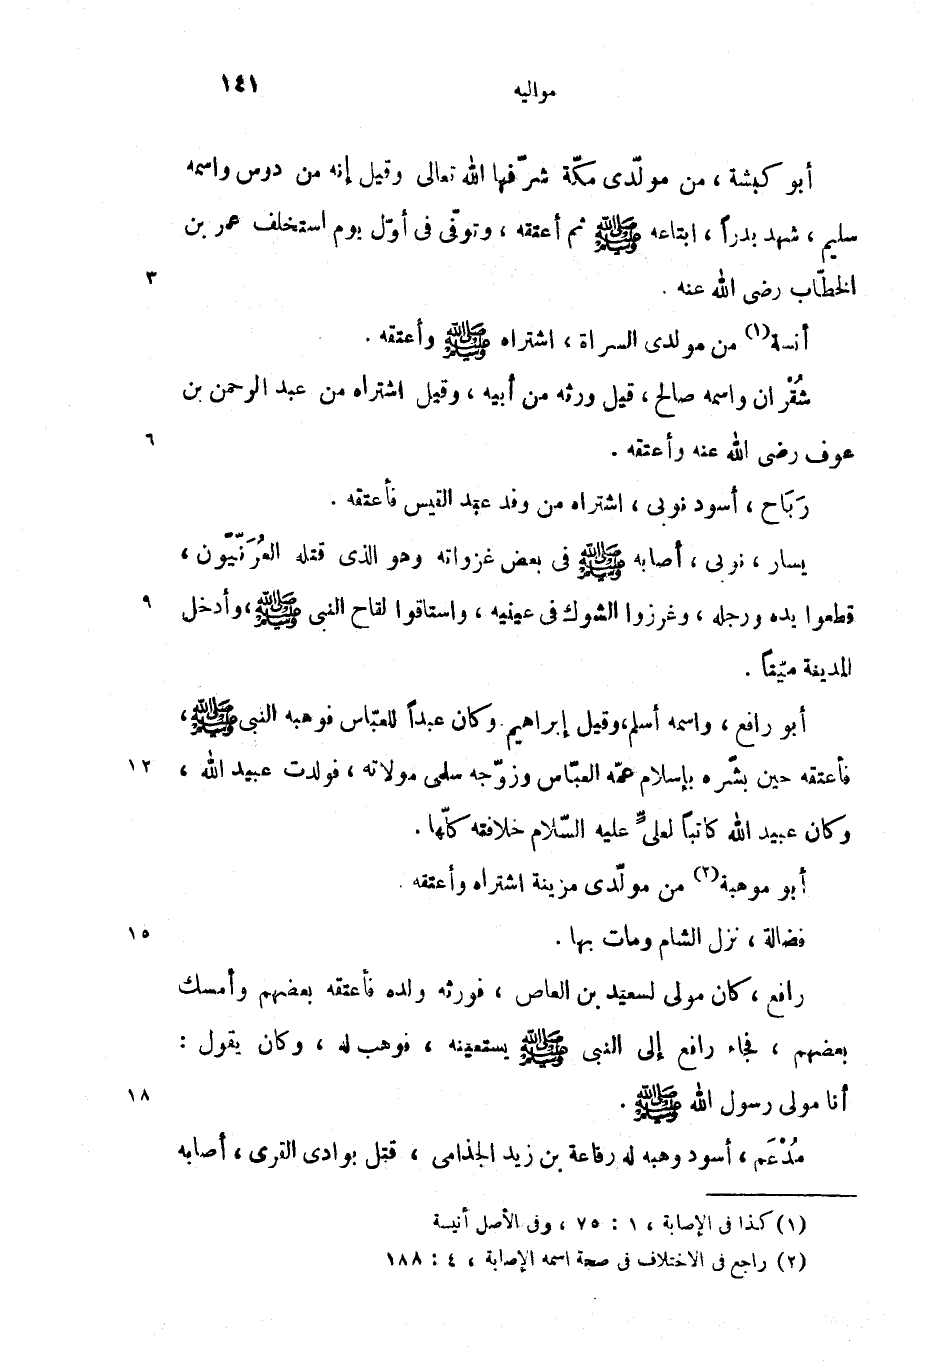 مواليه ١٤١
أبو كبشة ، من مولّدى مكّة شرّفها الله تعالى وقيل إنه من دوس واسمه
سليم ، شهد بدراً ، ابتاعه ﷺ ثم أعتقه ، وتوفّى فى أوّل يوم استخلف عمر بن
الخطّاب رضى الله عنه . ٣
أنسة(١) من مولدى السراة ، اشتراه ﷺ وأعتقه .
شُقْران واسمه صالح ، قيل ورثه من أبيه ، وقيل اشتراه من عبد الرحمن بن
عوف رضى الله عنه وأعتقه . ٦
رَبَاح ، أسود نوبى ، اشتراه من وفد عبد القيس فأعتقه .
يسار ، نوبى ، أصابه ﷺ فى بعض غزواته وهو الذى قتله العُرَنّيّون ،
قطعوا يده ورجله ، وغرزوا الشوك فى عينيه ، واستاقوا لقاح النبى ﷺ ، وأدخل ٩
المدينة ميّتاً .
أبو رافع ، واسمه أسلم ، وقيل إبراهيم وكان عبداً للعبّاس فوهبه النبى ﷺ ،
فأعتقه حين بشّره بإسلام عمّه العبّاس وزوّجه سلمى مولاته ، فولدت عبيد الله ، ١٢
وكان عبيد الله كاتباً لعلىٍّ عليه السّلام خلافته كلّها .
أبو موهبة(٢) من مولّدى مزينة اشتراه وأعتقه .
فضالة ، نزل الشام ومات بها . ١٥
رافع ، كان مولى لسعيد بن العاص ، فورثه ولده فأعتقه بعضهم وأمسك
بعضهم ، فجاء رافع إلى النبى ﷺ يستعينه ، فوهب له ، وكان يقول :
أنا مولى رسول الله ﷺ . ١٨
مُدْعَم ، أسود وهبه له رفاعة بن زيد الجذامى ، قتل بوادى القرى ، أصابه
(١) كذا فى الإصابة ، ١ : ٧٥ ، وفى الأصل أنيسة
(٢) راجع فى الاختلاف فى صحة اسمه الإصابة ، ٤ : ١٨٨